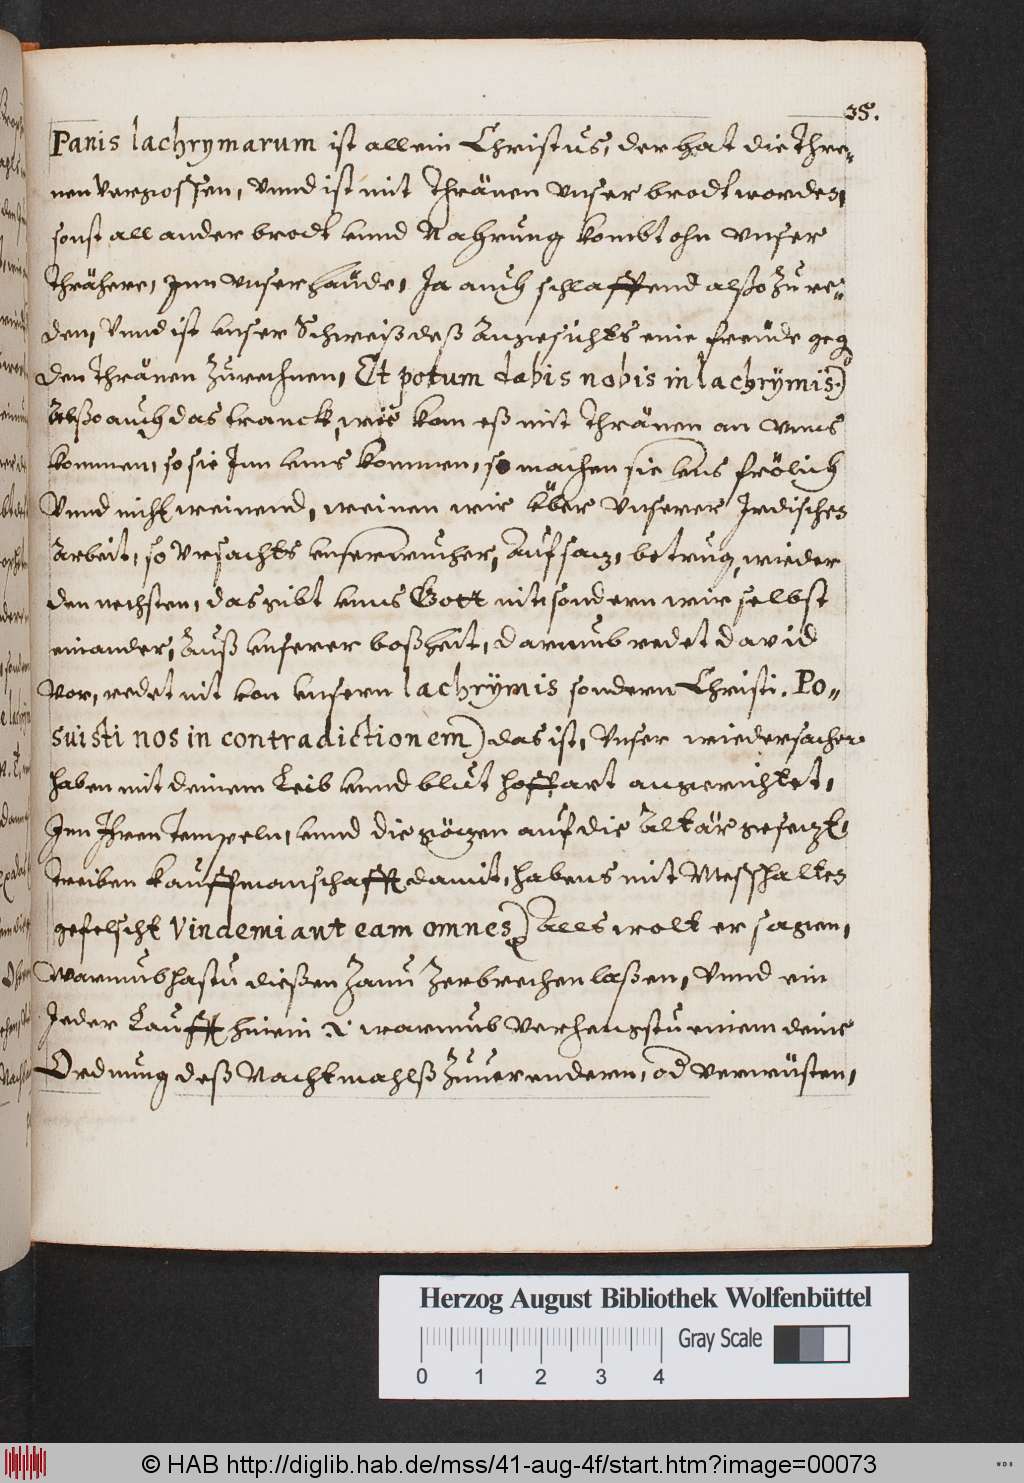 35.
Panis lachrymarum ist allein Christus, der hat die Thre„
nen Vergossen, Vnnd ist mit Thränen vnser brodt worden,
sonst all ander brodt vnnd Nahrung kombt ohn vnser
Thrähere, Inn vnser hände, Ja auch schlaffend alßo zu re„
den, Vnnd ist vnser Schweiß deß Angesichts eine freüde geg
den Thränen zurechnen, Et potum dabis nobis in lachrÿmis)
Alßo auch das tranck, wie kan eß mit Thränen an vnns
kommen, so sie Inn vnns kommen, so machen sie vns frölich
Vnnd nicht weinend, weinen wir über vnserer Irdischen
Arbeit, so Vrsachts vnser wucher, Aufsatz, betrug, wieder
den nechsten, das gibt vnns Gott nit sondern wir selbst
einander, Auß vnserer boßheit, darumb redet david
Vor, redet nit von vnsern lachrÿmis sondern Christi. Po„
suisti nos in contradictionem) das ist, Vnser wiedersacher
haben mit deinem Leib vnnd blut hoffart angerichtet,
Inn Ihren Tempeln, vnnd die götzen auf die Altär gesetzt,
Treiben kauffmanschafft damit, habens mit Messhalten
gefelscht Vindemiant eam omnes) Alls wolt er sagen,
Warumb hastu dießen Zaun Zerbrechen laßen, Vnnd ein
Jeder Laufft hinein, warumb Verhengstu einem deine
Ordnung deß Nachtmahlß Zuuerendern, od Verwüsten,
Herzog August Bibliothek Wolfenbüttel
Gray Scale
0 1 2 3 4
© HAB http://diglib.hab.de/mss/41-aug-4f/start.htm?image=00073